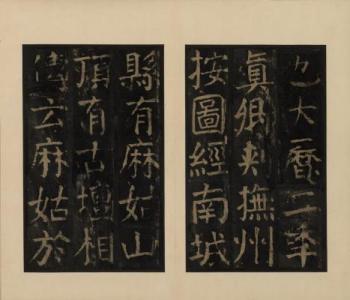 也大曆三年
眞卿刺撫州
按圖經南城
縣有麻姑山
頂有古壇相
傳云麻姑於